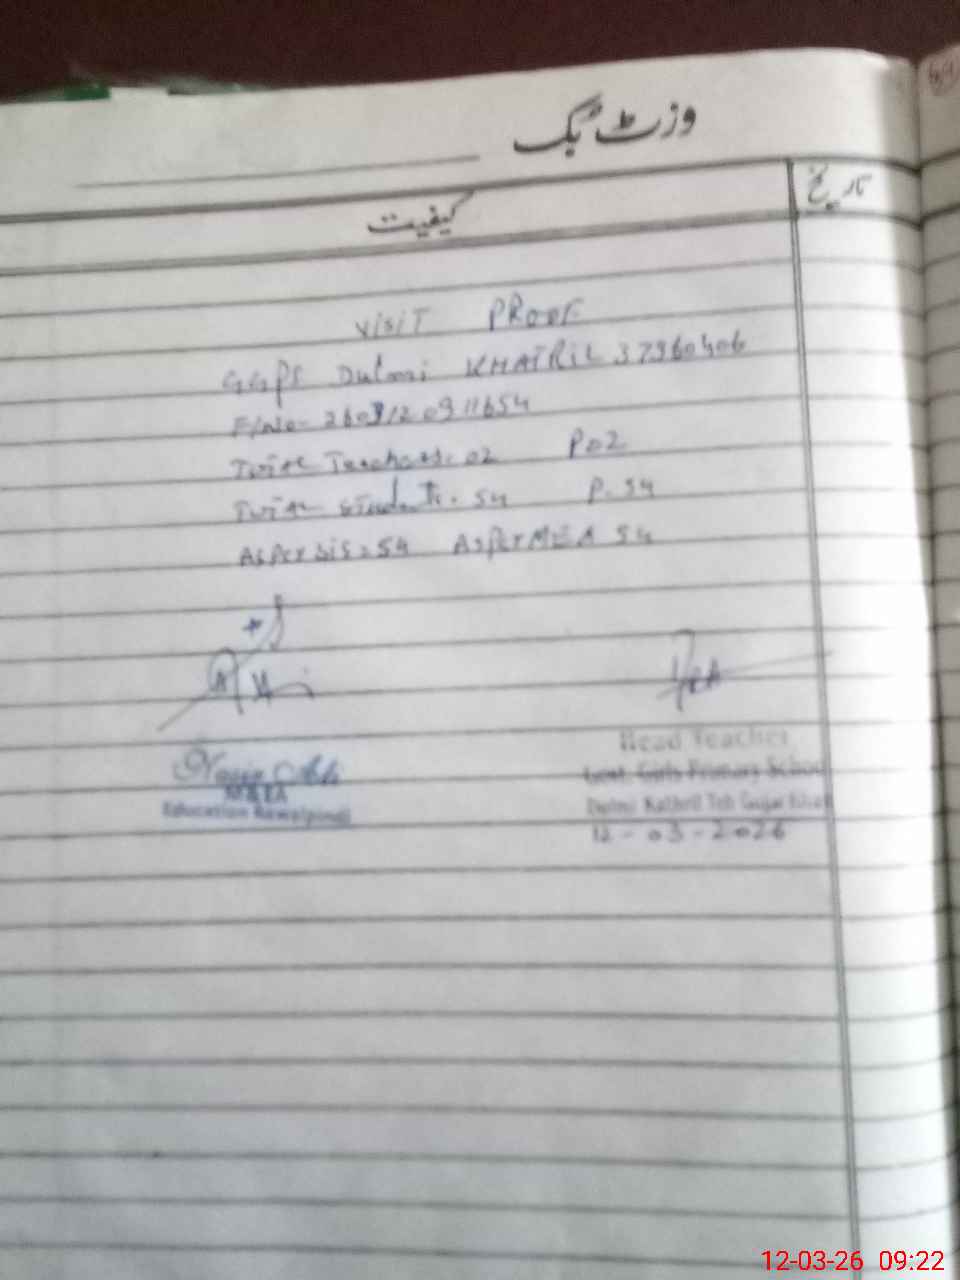 وزٹ بک
تاریخ
کیفیت
VISIT PROOF
GGPS Dulmi KHATRIL 37360406
F/No- 260312091654
Teachers. 02 P02
Students. 54 P. 54
As Per SIS: 54 As Per MEA 54
MEA
Education Rawalpindi
Head Teacher
Govt. Girls Primary School
Dulmi Kathril Teh Gujar Khan
12-03-2026
12-03-26 09:22